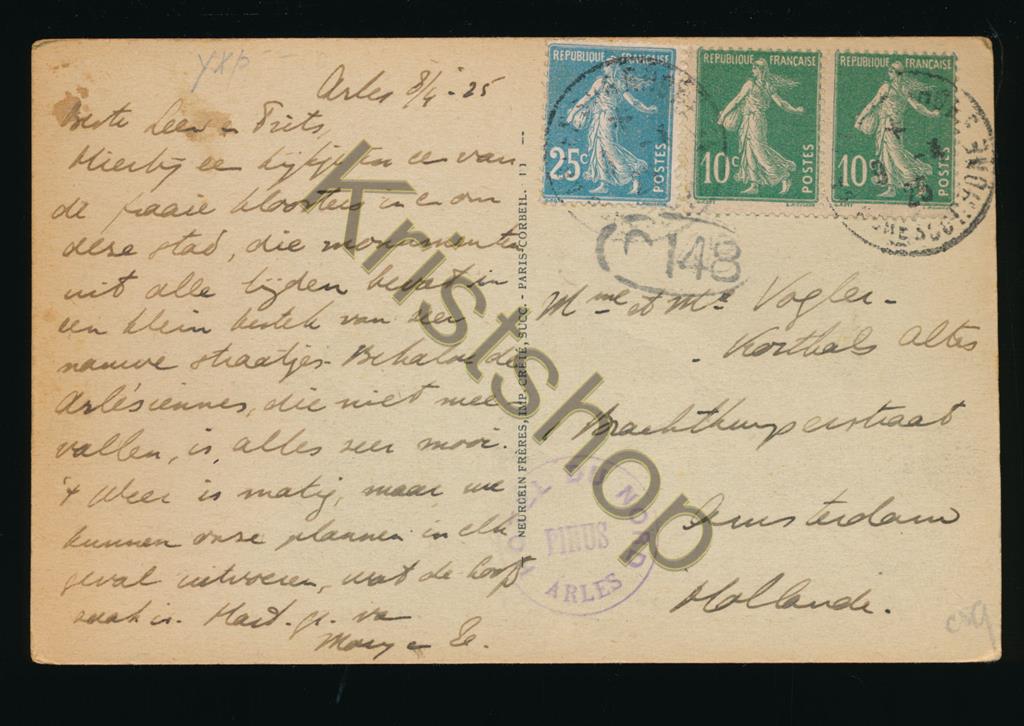 yxp
Arles 8/4 - 25
Beste Leen en Frits,
Hierbij een kijkje in een van
de fraaie kloosters in en om
deze stad, die monumenten
uit alle tijden bevat in
een klein bestek van zeer
nauwe straatjes. Behalve de
Arlésiennes, die niet mee
vallen, is alles zeer mooi.
't Weer is matig, maar we
kunnen onze plannen in elk
geval uitvoeren, wat de hoofd
zaak is. Hart. gr. van
Mary en
NEURDEIN FRÈRES, IMP. CRÉTÉ, SUCC. - PARIS-CORBEIL.
REPUBLIQUE FRANÇAISE
25c
POSTES
REPUBLIQUE FRANÇAISE
10c
POSTES
REPUBLIQUE FRANÇAISE
10c
POSTES
RHONE
25
148
Mme et Mr Vogler -
Korthals Altes
Amsterdam
Hollande.
HOTEL DU NORD
PINUS
ARLES
Kristshop